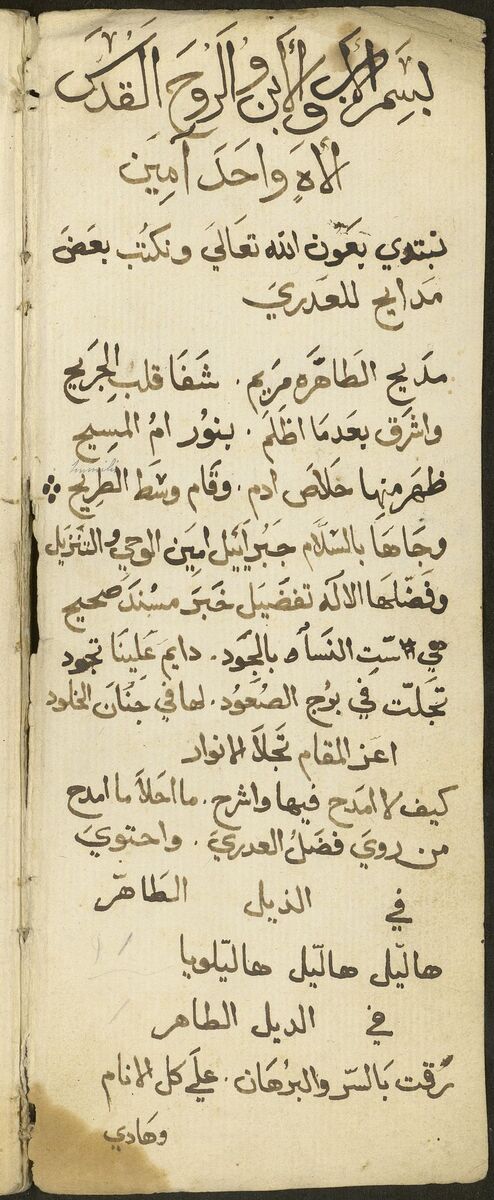 بسم الاب والابن والروح القدس
الاه واحد آمين
نبتدي بعون الله تعالى ونكتب بعض
مدايح للعدرى
مديح الطاهره مريم . شفا قلب الجريح
واشرق بعدما اظلم . بنور ام المسيح
ظهر منها خلاص ادم . وقام وسط الطريح
وجاها بالسلام جبرآئيل امين الوحي والتنزيل
وفضلها الاله تفضيل خبر مسند صحيح
هي ست النساء بالجود . دايم علينا تجود
تجلت في برج الصعود . لها في جنان الخلود
اعز المقام تجلا الانوار
كيف لا امدح فيها واشرح . ما احلا ما امدح
من روي فضل العدرى . واحتوي
في الذيل الطاهر
هاليل هاليل هاليلويا
في الديل الطاهر
رقت بالسر والبرهان . علي كل الانام
وهادي